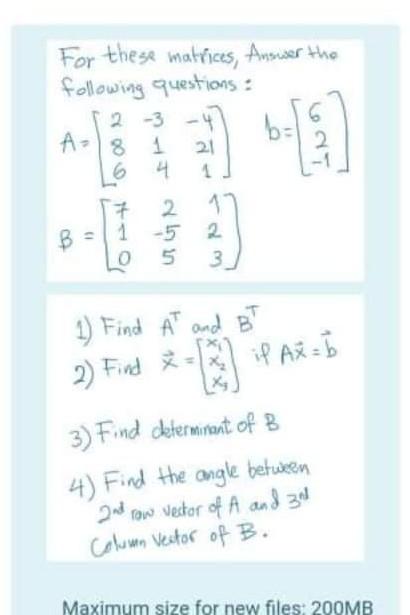 For these matrices, Answer the
following questions :
A = [2 -3 -4
8 1 21
6 4 1]
b = [6
2
-1]
B = [7 2 1
1 -5 2
0 5 3]
1) Find Aᵀ and Bᵀ
2) Find x⃗ = [x₁
x₂
x₃] if Ax⃗ = b⃗
3) Find determinant of B
4) Find the angle between
2nd row vector of A and 3rd
Column Vector of B.
Maximum size for new files: 200MB